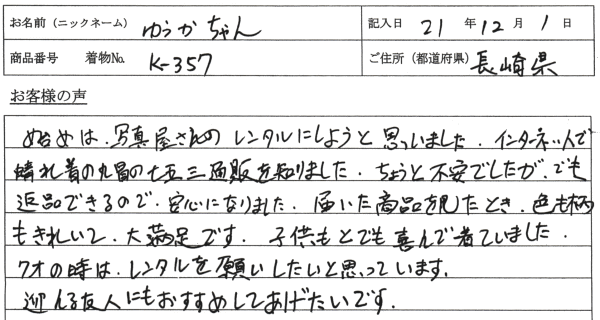 お名前（ニックネーム） ゆうかちゃん 記入日 21 年 12 月 1 日
商品番号 着物No. K-357 ご住所（都道府県） 長崎県
お客様の声
始めは、写真屋さんのレンタルにしようと思いました．インターネットで
晴れ着の丸昌の七五三通販を知りました．ちょっと不安でしたが、でも
返品できるので、安心になりました．届いた商品を見たとき、色も柄
もきれいで、大満足です．子供もとても喜んで着ていました．
7才の時は、レンタルを願いしたいと思っています．
迎える友人にもおすすめしてあげたいです．